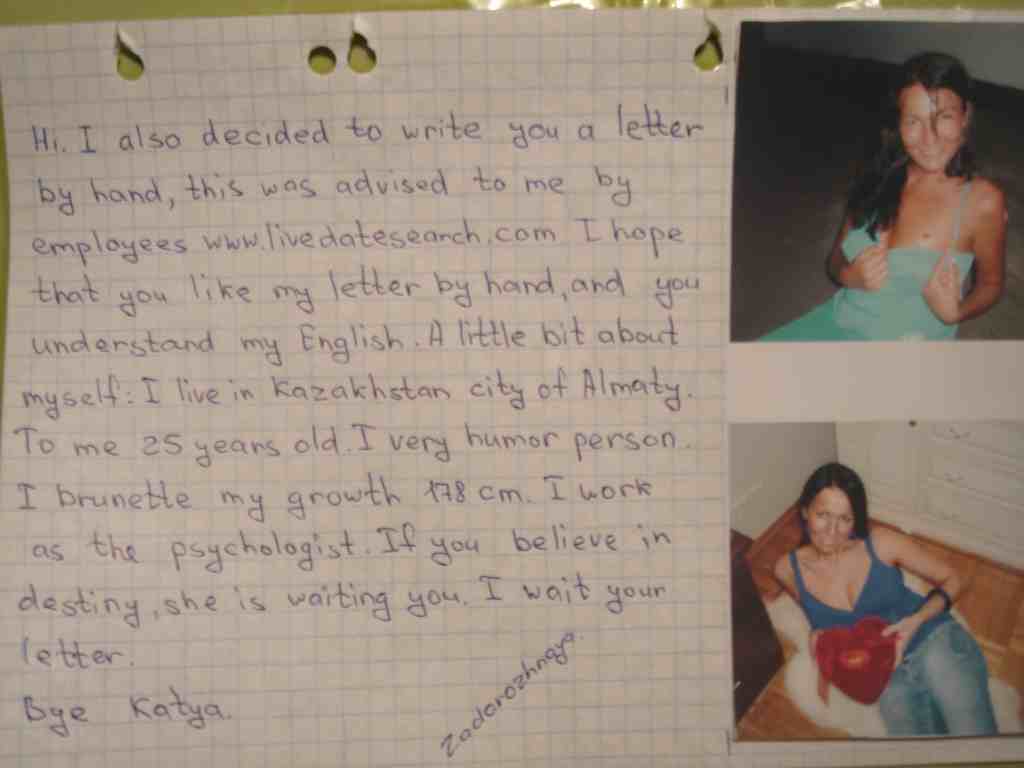 Hi. I also decided to write you a letter
by hand, this was advised to me by
employees www.livedatesearch.com I hope
that you like my letter by hand, and you
understand my English. A little bit about
myself: I live in Kazakhstan city of Almaty.
To me 25 years old. I very humor person.
I brunette my growth 178 cm. I work
as the psychologist. If you believe in
destiny, she is waiting you. I wait your
letter.
Bye Katya.
Zadorozhnaya.